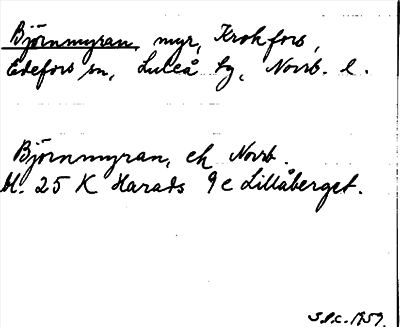 Björnmyran, myr, Krokfors,
Edefors sn, Luleå sg, Norrb. l.
Björnmyran, ek Norrb.
bl. 25 K Harads 9 c Lillåberget.
S.L.c. 1959.